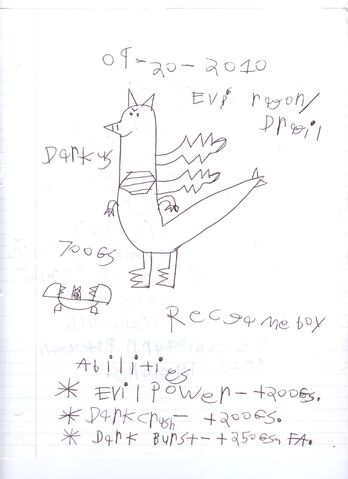 09-20-2010
Evil ragon/
Droil
Darkus
700Gs
Recgameboy
Abilities
* Evil Power- +200Gs.
* Dark crush- +200Gs.
* Dark Burst- +250Gs, FA.